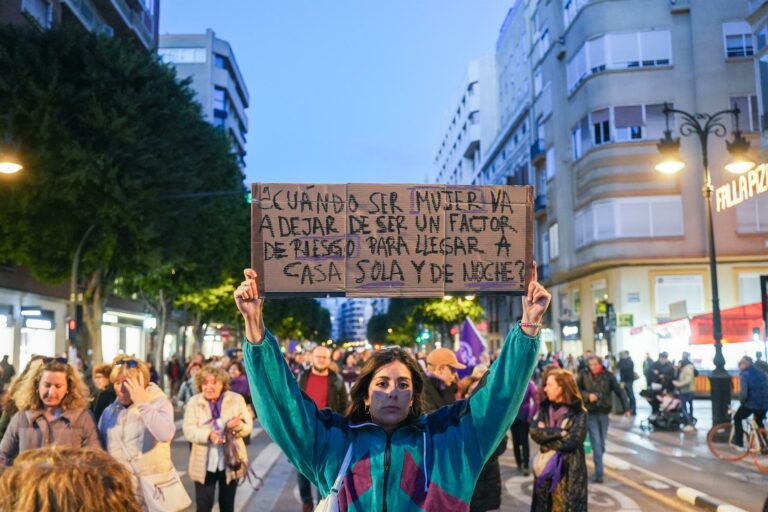 ¿CUÁNDO SER MUJER VA
A DEJAR DE SER UN FACTOR
DE RIESGO PARA LLEGAR A
CASA SOLA Y DE NOCHE?
FALLA PIZ